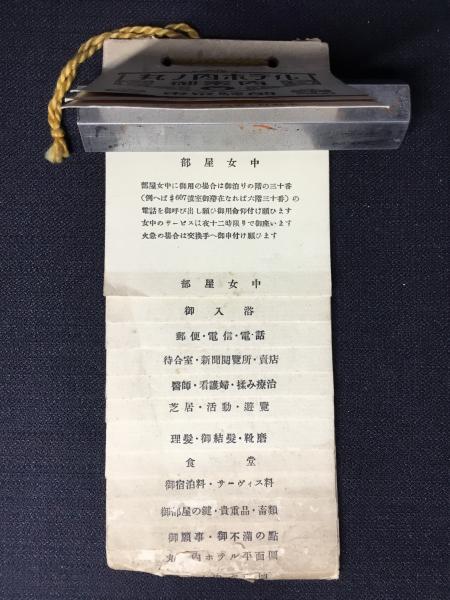 丸ノ内ホテル
御案内
部屋女中
部屋女中に御用の場合は御泊りの階の三十番
(例へば#607號室御滯在なれば六階三十番)の
電話を御呼び出し願ひ御用命仰付け願ひます
女中のサービスは夜十二時限りで御座います
火急の場合は交換手へ御申付け願ひます
部屋女中
御入浴
郵便・電信・電話
待合室・新聞閲覽所・賣店
醫師・看護婦・揉み療治
芝居・活動・遊覽
理髮・御結髮・靴磨
食堂
御宿泊料・サーヴィス料
御部屋の鍵・貴重品・畜類
御願事・御不滿の點
丸ノ内ホテル平面圖